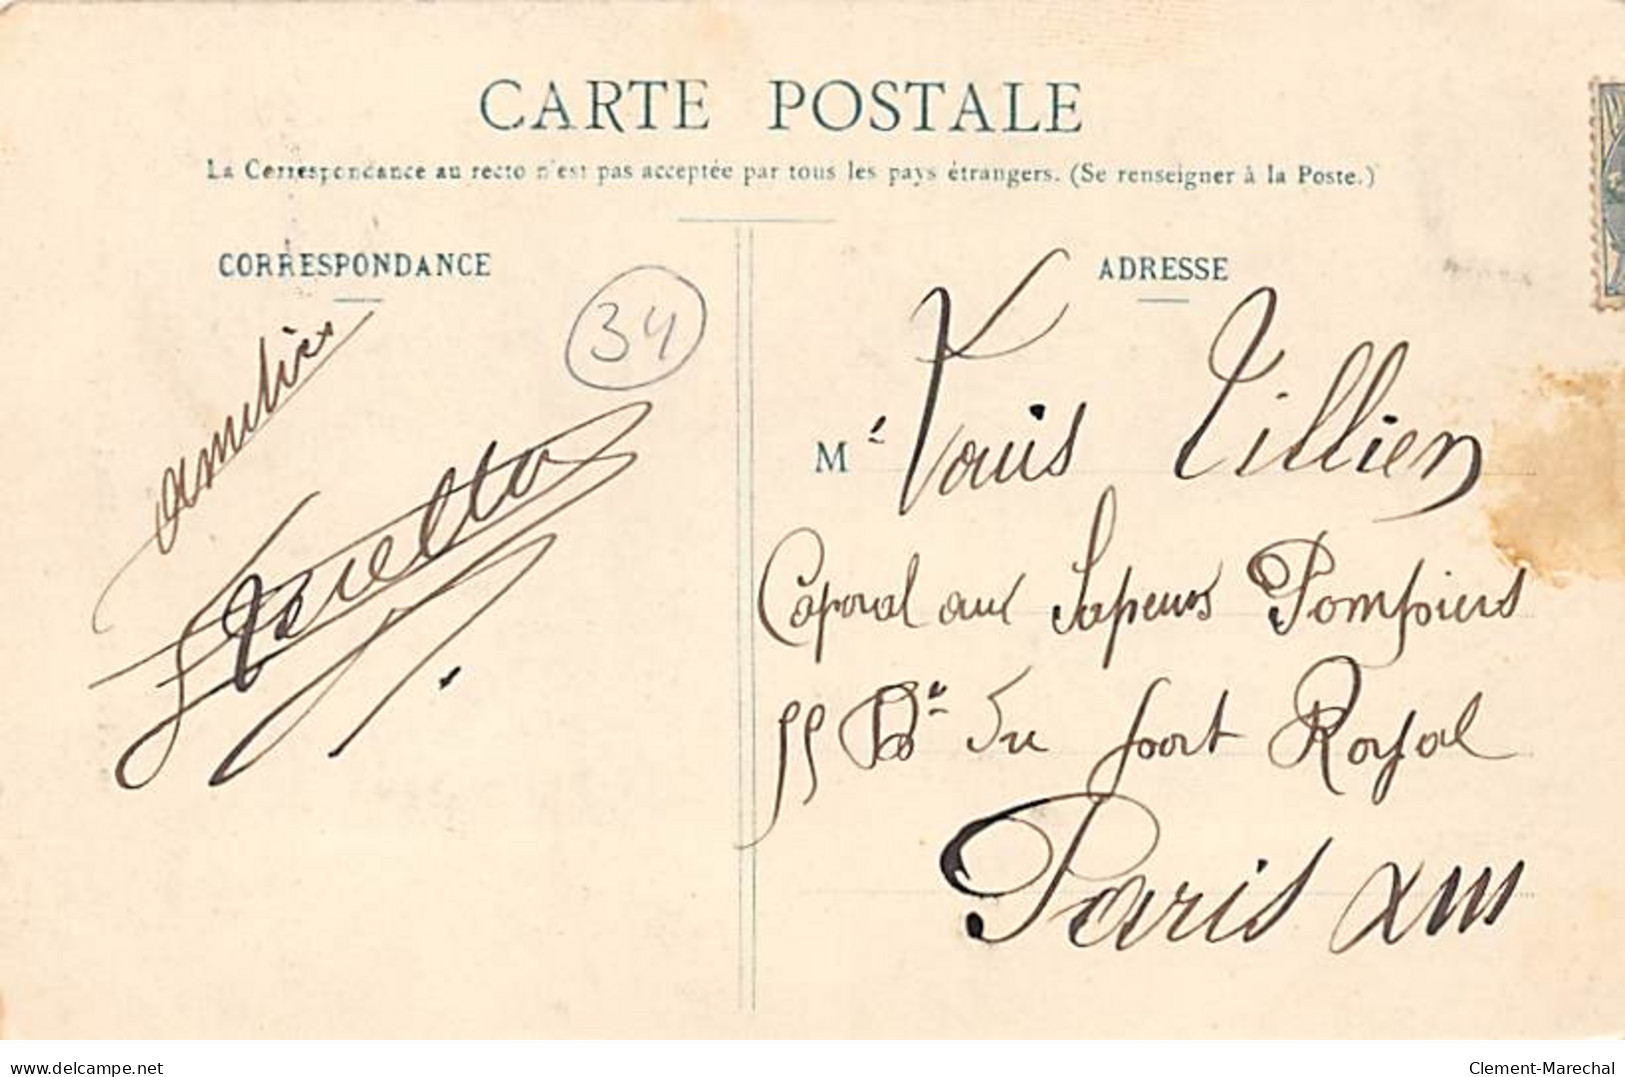 CARTE POSTALE
La Correspondance au recto n'est pas acceptée par tous les pays étrangers. (Se renseigner à la Poste.)
CORRESPONDANCE
34
amitiés
ADRESSE
Mr Louis Tillien
Caporal aux Sapeurs Pompiers
55 Bd du port Royal
Paris XIII
delcampe.net
Clement-Marechal